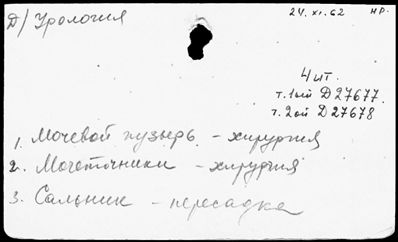 Д/ Урология
24.XI.62 нр.
4 шт.
т. 1ый Д27677.
т. 2ой Д27678
1. Мочевой пузырь - хирургия
2. Мочеточники - хирургия
3. Сальник - пересадка